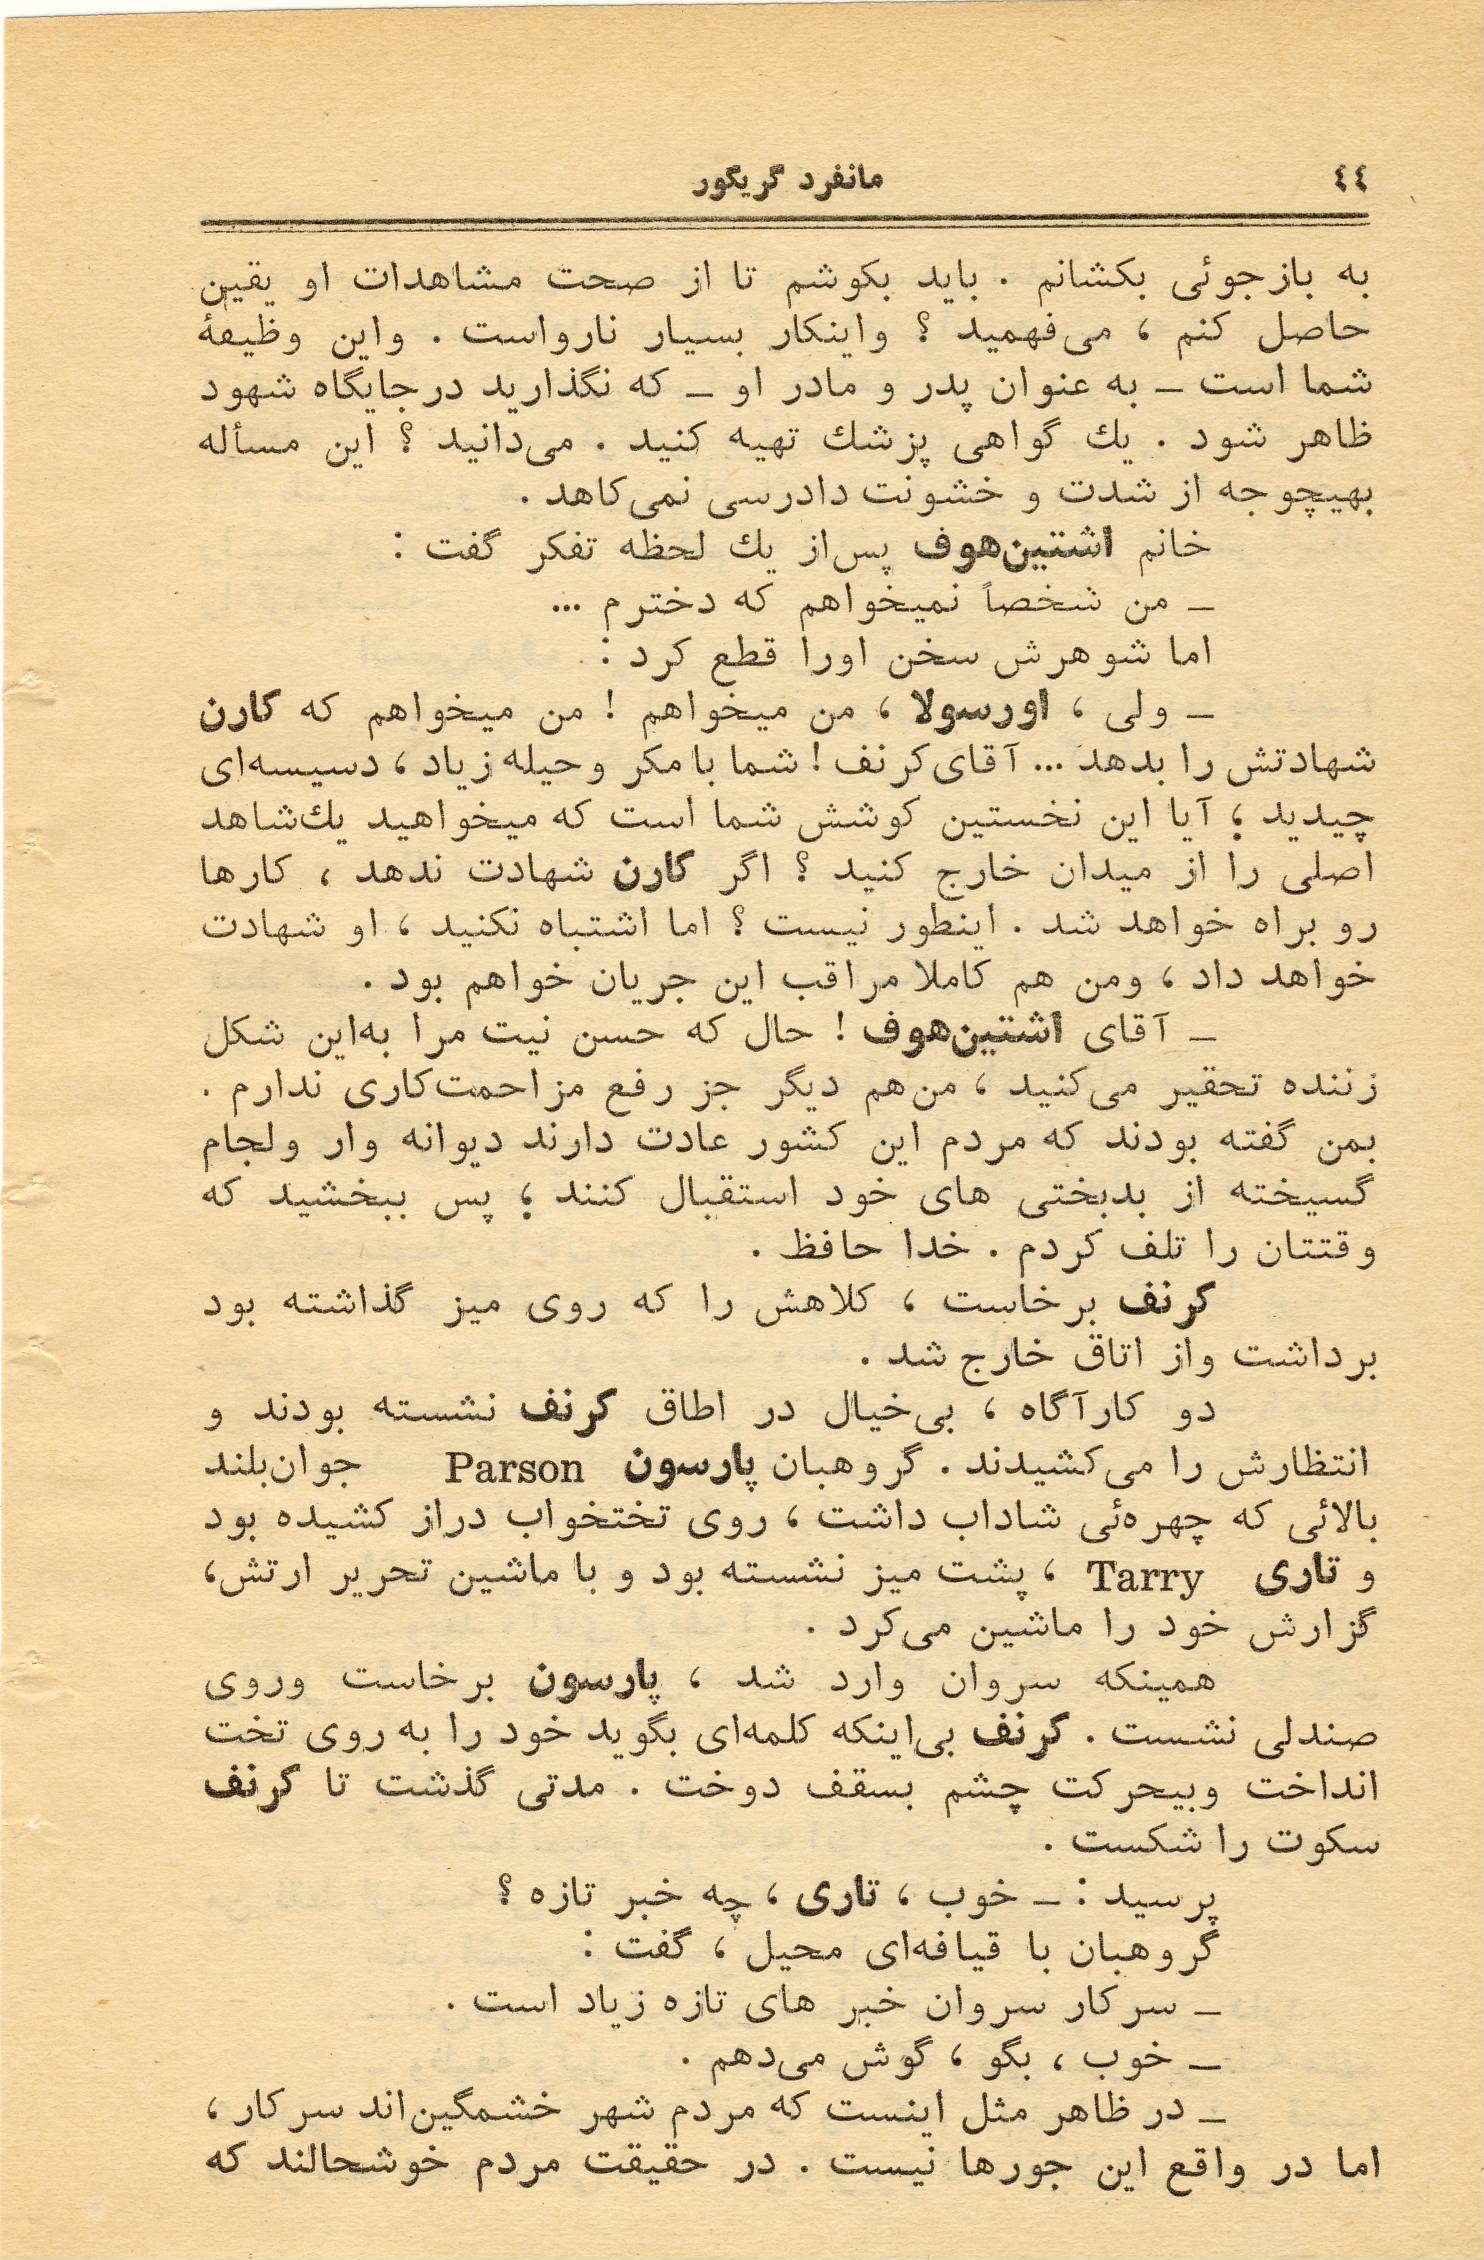 ٤٤
مانفرد گریگور
به بازجوئی بکشانم . باید بکوشم تا از صحت مشاهدات او یقین
حاصل کنم ، می‌فهمید ؟ واینکار بسیار نارواست . واین وظیفهٔ
شما است ـ به عنوان پدر و مادر او ـ که نگذارید درجایگاه شهود
ظاهر شود . یك گواهی پزشك تهیه کنید . می‌دانید ؟ این مسأله
بهیچوجه از شدت و خشونت دادرسی نمی‌کاهد .
خانم اشتین‌هوف پس‌از یك لحظه تفکر گفت :
ـ من شخصاً نمیخواهم که دخترم ...
اما شوهرش سخن اورا قطع کرد :
ـ ولی ، اورسولا ، من میخواهم ! من میخواهم که کارن
شهادتش را بدهد ... آقای کرنف ! شما با مکر و حیله زیاد ، دسیسه‌ای
چیدید ؛ آیا این نخستین کوشش شما است که میخواهید یك‌شاهد
اصلی را از میدان خارج کنید ؟ اگر کارن شهادت ندهد ، کارها
رو براه خواهد شد . اینطور نیست ؟ اما اشتباه نکنید ، او شهادت
خواهد داد ، ومن هم کاملا مراقب این جریان خواهم بود .
ـ آقای اشتین‌هوف ! حال که حسن نیت مرا به‌این شکل
زننده تحقیر می‌کنید ، من‌هم دیگر جز رفع مزاحمت‌کاری ندارم .
بمن گفته بودند که مردم این کشور عادت دارند دیوانه وار ولجام
گسیخته از بدبختی های خود استقبال کنند ؛ پس ببخشید که
وقتتان را تلف کردم . خدا حافظ .
کرنف برخاست ، کلاهش را که روی میز گذاشته بود
برداشت واز اتاق خارج شد .
دو کارآگاه ، بی‌خیال در اطاق کرنف نشسته بودند و
انتظارش را می‌کشیدند . گروهبان پارسون Parson جوان‌بلند
بالائی که چهره‌ئی شاداب داشت ، روی تختخواب دراز کشیده بود
و تاری Tarry ، پشت میز نشسته بود و با ماشین تحریر ارتش،
گزارش خود را ماشین می‌کرد .
همینکه سروان وارد شد ، پارسون برخاست وروی
صندلی نشست . کرنف بی‌اینکه کلمه‌ای بگوید خود را به روی تخت
انداخت وبیحرکت چشم بسقف دوخت . مدتی گذشت تا کرنف
سکوت را شکست .
پرسید : ـ خوب ، تاری ، چه خبر تازه ؟
گروهبان با قیافه‌ای محیل ، گفت :
ـ سرکار سروان خبر های تازه زیاد است .
ـ خوب ، بگو ، گوش می‌دهم .
ـ در ظاهر مثل اینست که مردم شهر خشمگین‌اند سرکار ،
اما در واقع این جورها نیست . در حقیقت مردم خوشحالند که